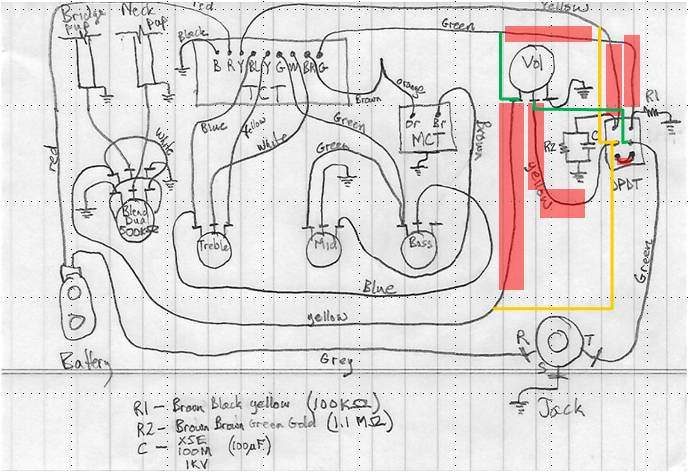 Bridge Neck
pup pup
red
Yellow
Green
Black
B R Y BL Y G W BR G
TCT
Vol
R1
Brown
orange
Or Br
MCT
Brown
Blue
yellow
white
Green
Green
white
red
R2
C
yellow
DPDT
Blend
Dual
500KΩ
Treble
Mid
Bass
Blue
yellow
Green
Battery
Grey
R T
S
Jack
R1 - Brown Black yellow (100KΩ)
R2 - Brown Brown Green Gold (1.1 MΩ)
C - X5E (100µF)
100M
1KV